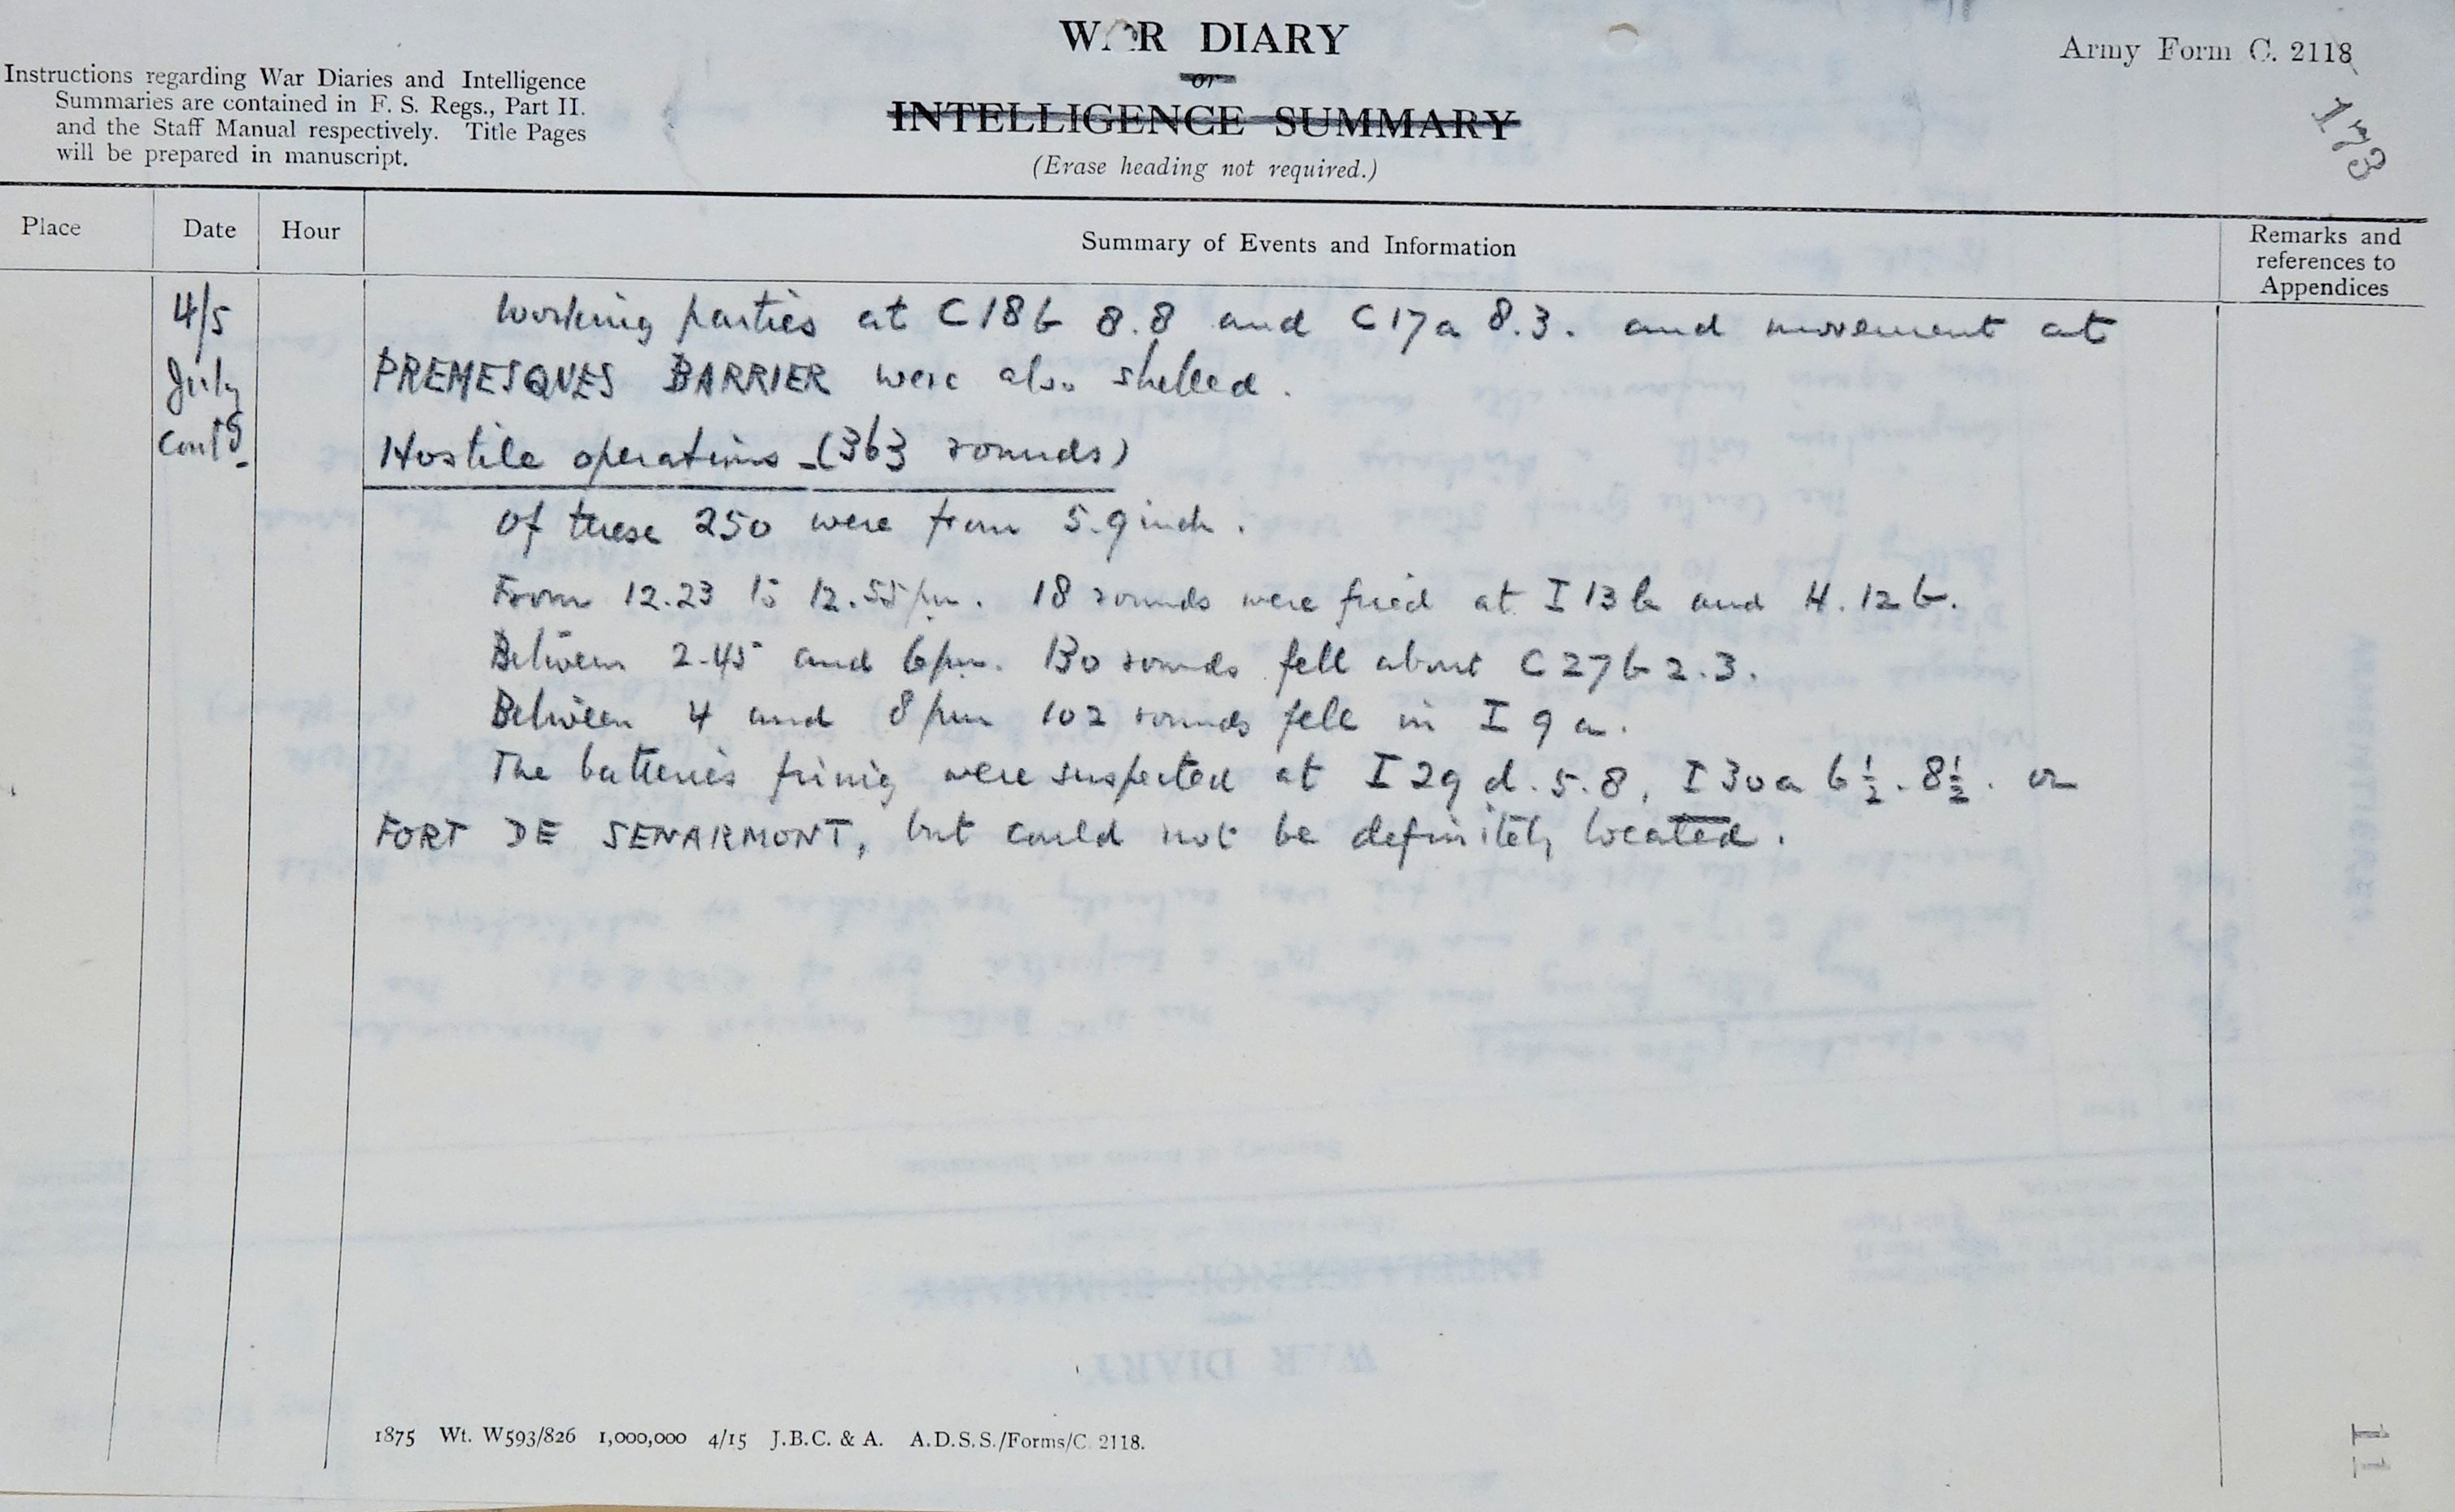 WAR DIARY
or
INTELLIGENCE SUMMARY
(Erase heading not required.)
Army Form C. 2118
173
Instructions regarding War Diaries and Intelligence
Summaries are contained in F. S. Regs., Part II.
and the Staff Manual respectively. Title Pages
will be prepared in manuscript.
Place
Date
Hour
Summary of Events and Information
Remarks and
references to
Appendices
4/5
July
Contd
working parties at C18b 8.8 and C17a 8.3. and movement at
PREMESQUES BARRIER were also shelled.
Hostile operations - (363 rounds)
Of these 250 were from 5.9 inch.
From 12.23 to 12.55 pm. 18 rounds were fired at I 13 b and H. 12 b.
Between 2.45 and 6 pm. 130 rounds fell about C 27 b 2.3.
Between 4 and 8 pm 102 rounds fell in I 9 a.
The batteries firing were suspected at I 29 d. 5.8, I 30 a 6½. 8½. or
FORT DE SENARMONT, but could not be definitely located.
1875 Wt. W593/826 1,000,000 4/15 J.B.C. & A. A.D.S.S./Forms/C. 2118.
11